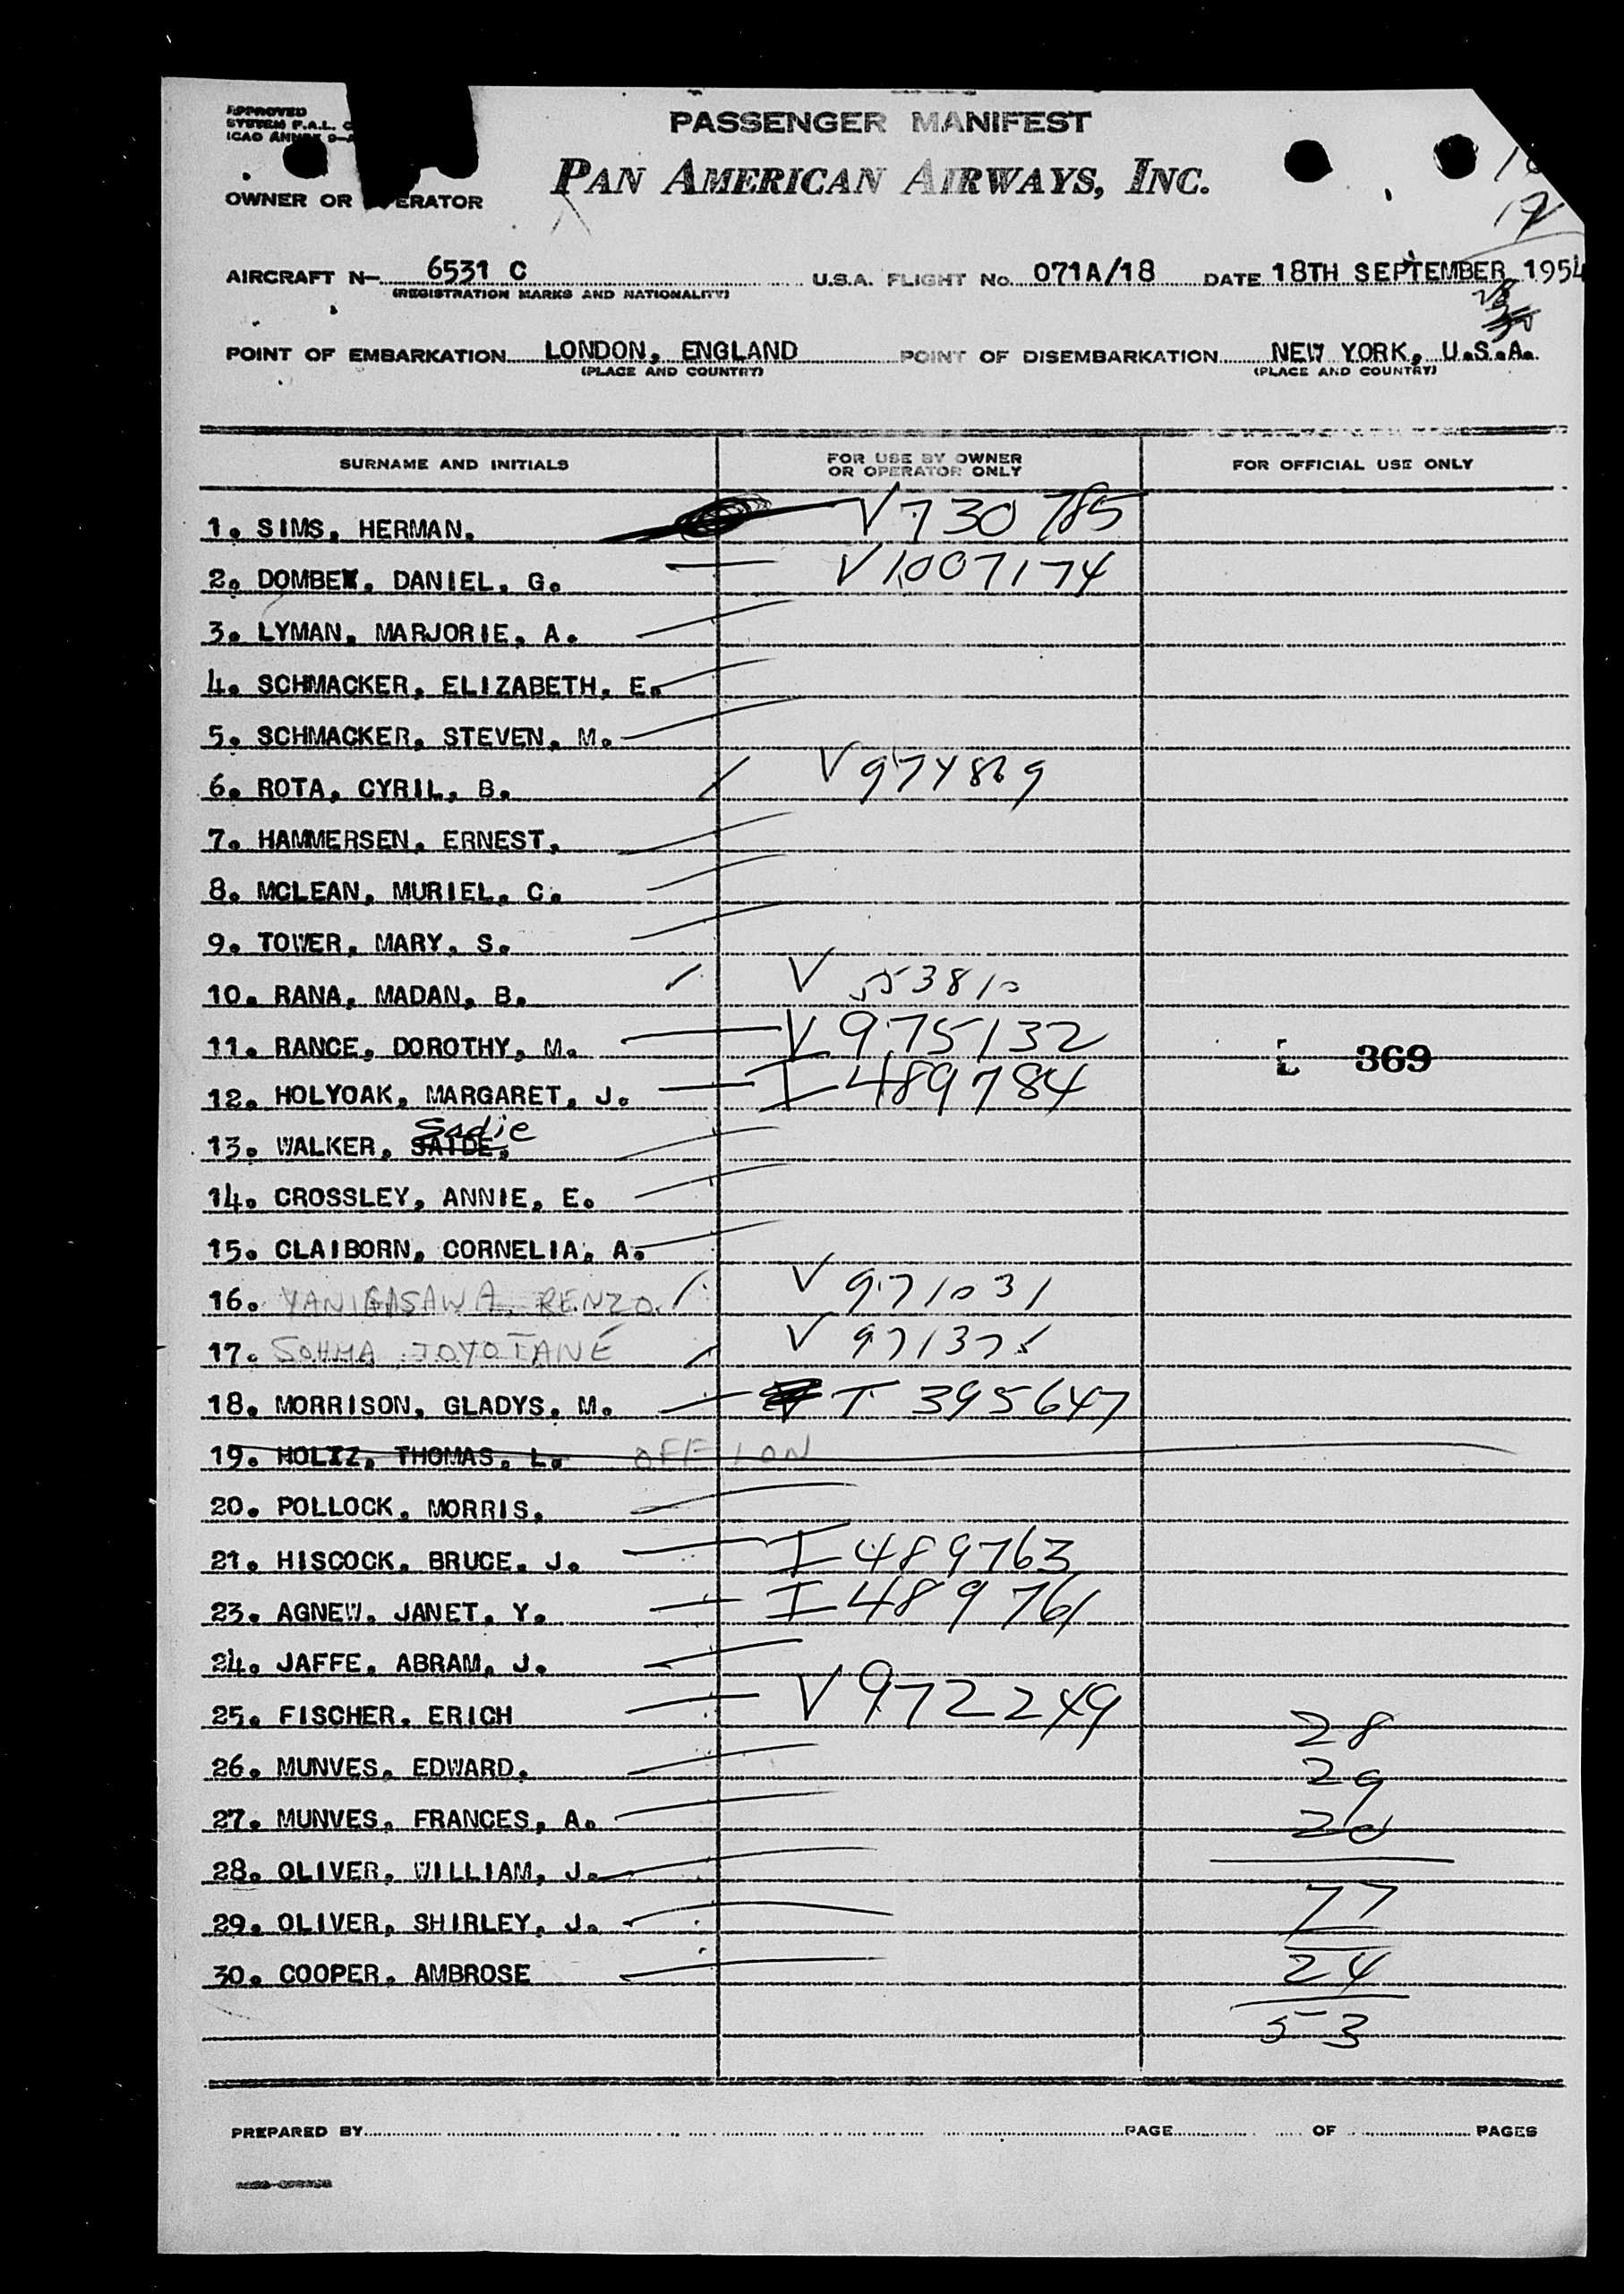 APPROVED
SYSTEM F.A.L.
ICAO ANNEX 9-A
PASSENGER MANIFEST
PAN AMERICAN AIRWAYS, INC.
OWNER OR OPERATOR
AIRCRAFT N- 6531 C U.S.A. FLIGHT No. 071A/18 DATE 18TH SEPTEMBER 1954
(REGISTRATION MARKS AND NATIONALITY)
28
POINT OF EMBARKATION LONDON, ENGLAND POINT OF DISEMBARKATION NEW YORK, U.S.A.
(PLACE AND COUNTRY) (PLACE AND COUNTRY)
SURNAME AND INITIALS FOR USE BY OWNER OR OPERATOR ONLY FOR OFFICIAL USE ONLY
1. SIMS, HERMAN. V 730785
2. DOMBEK, DANIEL, G. V 1007174
3. LYMAN, MARJORIE, A.
4. SCHMACKER, ELIZABETH, E.
5. SCHMACKER, STEVEN, M.
6. ROTA, CYRIL, B. V
7. HAMMERSEN, ERNEST,
8. MCLEAN, MURIEL, C.
9. TOWER, MARY, S.
10. RANA, MADAN, B. V 553810
11. RANCE, DOROTHY, M. V 975132
L 369
12. HOLYOAK, MARGARET, J. I 489784
Sadie
13. WALKER, SAIDE,
14. CROSSLEY, ANNIE, E.
15. CLAIBORN, CORNELIA, A.
16. YANIGASAWA, RENZO. V 971031
17. SOHMA, TOYOTANE V
18. MORRISON, GLADYS, M. T 395647
19. HOLTZ, THOMAS, L. OFF LON
20. POLLOCK, MORRIS.
21. HISCOCK, BRUCE, J. I 489763
23. AGNEW, JANET, Y. I 489761
24. JAFFE, ABRAM, J.
25. FISCHER, ERICH V 972249
28
26. MUNVES, EDWARD. 29
27. MUNVES, FRANCES, A. 20
28. OLIVER, WILLIAM, J.
29. OLIVER, SHIRLEY, J. 77
30. COOPER, AMBROSE 24
53
PREPARED BY PAGE OF PAGES